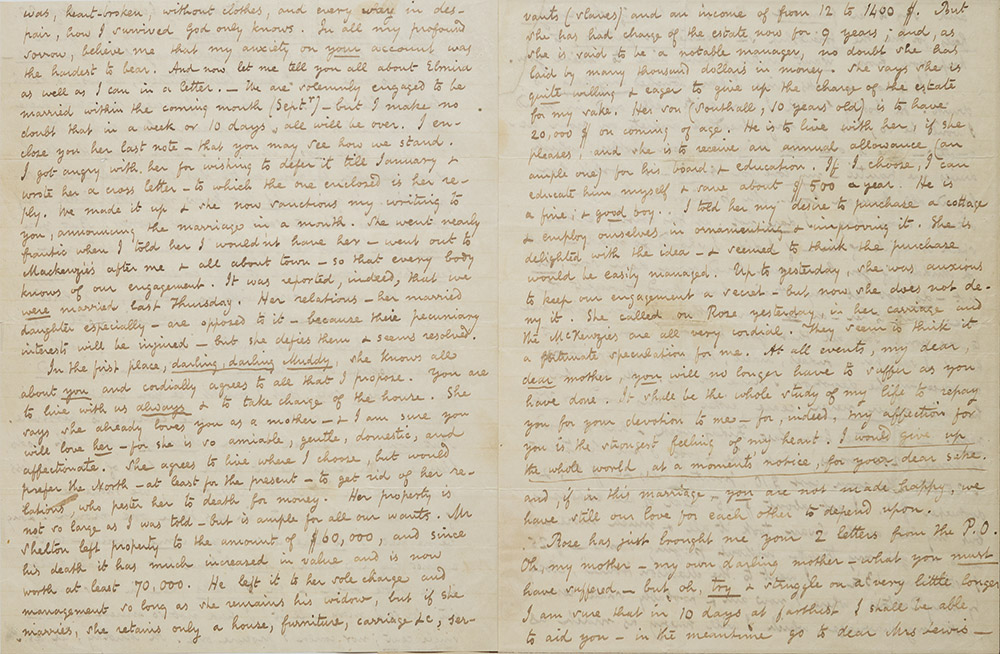 was, heart-broken, without clothes, and every way in des-
pair, how I survived God only knows. In all my profound
sorrow, believe me that my anxiety on your account was
the hardest to bear. And now let me tell you all about Elmira
as well as I can in a letter. — We are solemnly engaged to be
married within the coming month (Sept.r) — but I make no
doubt that in a week or 10 days, all will be over. I en-
close you her last note — that you may see how we stand.
I got angry with her for wishing to defer it till January &
wrote her a cross letter — to which the one enclosed is her re-
ply. We made it up & she now sanctions my writing to
you, announcing the marriage in a month. She went nearly
frantic when I told her I would nt have her — went out to
Mackenzie's after me & all about town — so that every body
knows of our engagement. It was reported, indeed, that we
were married last Thursday. Her relations — her married
daughter especially — are opposed to it — because their pecuniary
interests will be injured — but she defies them & seems resolved.
In the first place, darling, darling Muddy, she knows all
about you and cordially agrees to all that I propose. You are
to live with us always & to take charge of the house. She
says she already loves you as a mother — & I am sure you
will love her — for she is so amiable, gentle, domestic, and
affectionate. She agrees to live where I choose, but would
prefer the North — at least for the present — to get rid of her re-
lations, who pester her to death for money. Her property is
not so large as I was told — but is ample for all our wants. Mr
Shelton left property to the amount of $60,000, and since
his death it has much increased in value and is now
worth at least 70,000. He left it to her sole charge and
management so long as she remains his widow, but if she
marries, she retains only a house, furniture, carriage &c, ser-
vants (slaves) and an income of from 12 to 1400 $. But
she has had charge of the estate now for 9 years; and, as
she is said to be a notable manager, no doubt she has
laid by many thousand dollars in money. She says she is
quite willing & eager to give up the charge of the estate
for my sake. Her son (Southall, 10 years old) is to have
20,000 $ on coming of age. He is to live with her, if she
pleases, and she is to receive an annual allowance (an
ample one) for his board & education. If I choose, I can
educate him myself & save about $500 a year. He is
a fine, & good boy. . I told her my desire to purchase a cottage
& employ ourselves in ornamenting & improving it. She is
delighted with the idea — & seemed to think the purchase
would be easily managed. Up to yesterday, she was anxious
to keep our engagement a secret — but now she does not de-
ny it. She called on Rose, yesterday, in her carriage and
the McKenzies are all very cordial. They seem to think it
a fortunate speculation for me. At all events, my dear,
dear mother, you will no longer have to suffer as you
have done. It shall be the whole study of my life to repay
you for your devotion to me — for, indeed, my affection for
you is the strongest feeling of my heart. I would give up
the whole world, at a moments notice, for your dear sake.
and, if in this marriage, you are not made happy, we
have still our love for each other to depend upon.
Rose has just brought me your 2 letters from the P.O.
Oh, my mother — my own darling mother — what you must
have suffered, — but oh, try & struggle on a very little longer
I am sure that in 10 days at farthest I shall be able
to aid you — in the meantime go to dear Mrs Lewis —